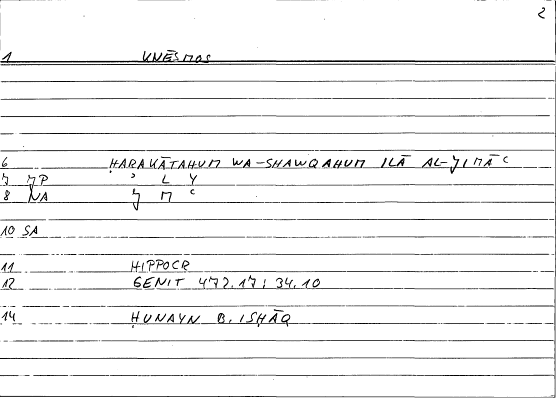 2
1 KNĒSMOS
6 ḤARAKĀTAHUM WA-SHAWQAHUM ILĀ AL-JIMĀʿ
7 JP ʾ L Y
8 NA J M ʿ
10 SA
11 HIPPOCR
12 GENIT 472.17; 34.10
14 ḤUNAYN B. ISḤĀQ